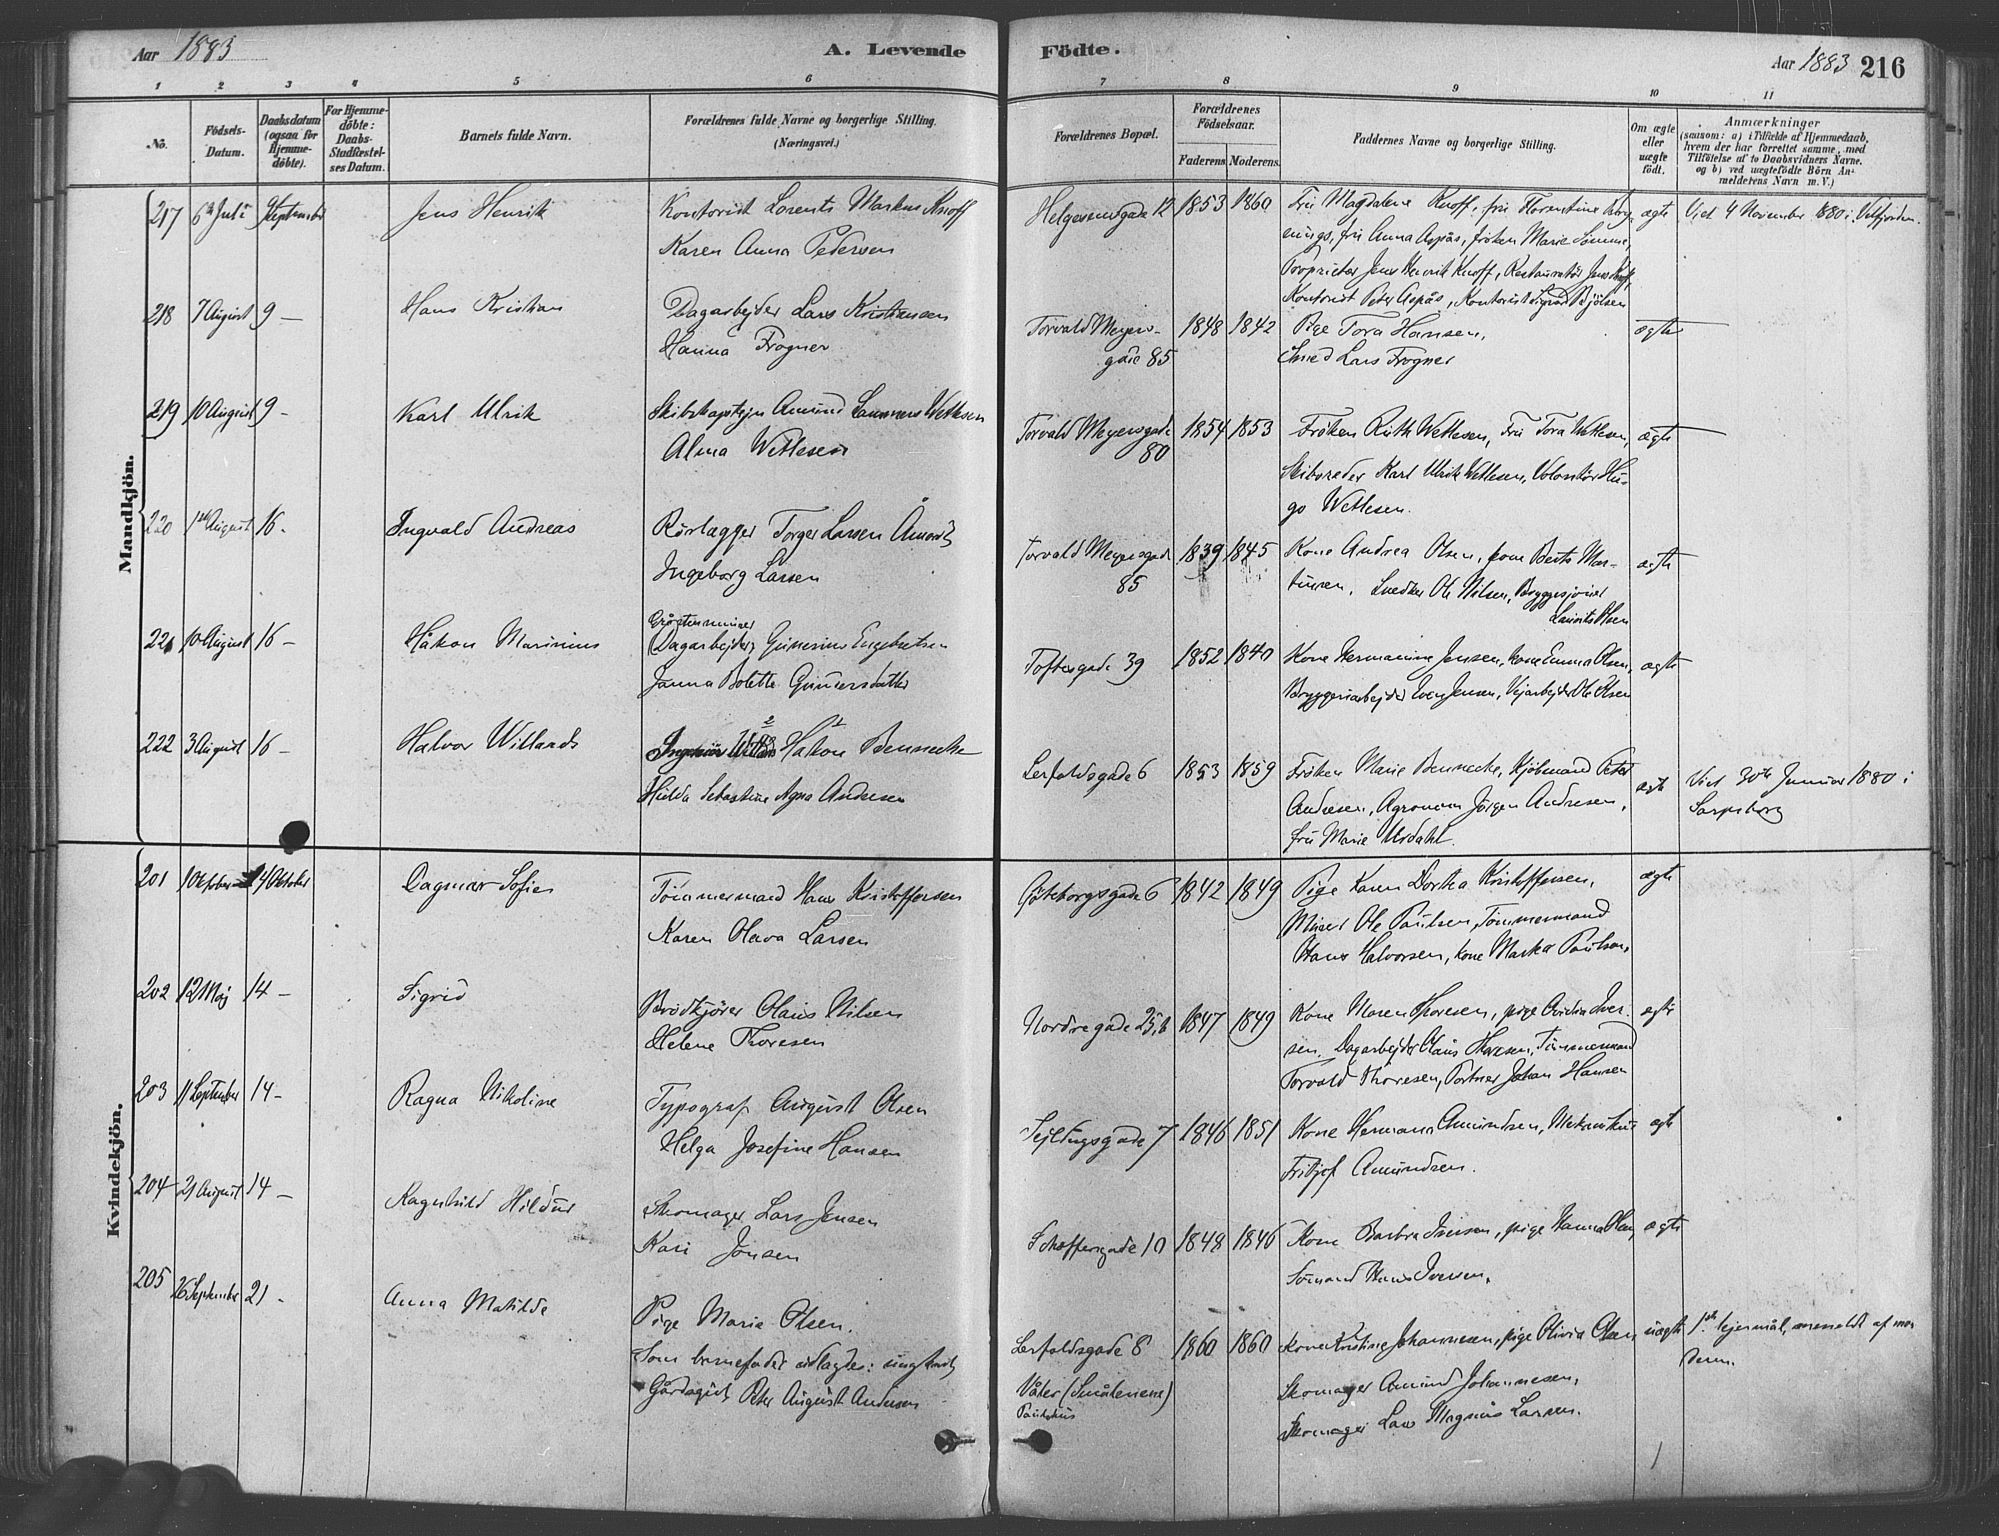 Aar 1883
A. Levende Födte.
Aar 1883
216
1 2 3 4 5 6 7 8 9 10 11
No.
Födsels-Datum.
Daabsdatum (ogsaa for Hjemmedöbte).
For Hjemmedöbte: Daabs-Stadfestelses Datum.
Barnets fulde Navn.
Forældrenes fulde Navne og borgerlige Stilling. (Næringsvei.)
Forældrenes Bopæl.
Forældrenes Födselsaar.
Faderens. Moderens.
Faddernes Navne og borgerlige Stilling.
Om ægte eller uægte födt.
Anmærkninger
(saasom: a) i Tilfælde af Hjemmedaab,
hvem der har forrettet samme, med
Tilföielse af to Daabsvidners Navne.
og b) ved uægtefödte Börn An-
melderens Navn m. V.)
Mandkjön.
217 6te Juli 9 September Jens Henrik
Kontorist Lorents Markus Knoff
Karen Anna Pedersen
Helgesensgade 12 1853 1860
Fru Magdalene Knoff, fru Florentine
fru Anna Aspås, fröken Marie Sömme,
Proprietær Jens Henrik Knoff, Restauratör Jens Knoff,
Kontorist Peter Aspås, Kontorist Sigvard
ægte
Viet 4 November 1880 i Velfjorden.
218 7 August 9 — Hans Kristian
Dagarbejder Lars Kristiansen
Hanna Frogner
Torvald Meyers-
gade 85 1848 1842
Pige Tora Hansen,
Smed Lars Frogner
ægte
219 10 August 9 - Karl Ulrik
Skibskaptejn Amund Wetlesen
Alma Wetlesen
Torvald Meyersgade
80 1854 1853
Fröken Ruth Wetlesen, Fru Tora Wetlesen,
Skibsreder Karl Ulrik Wetlesen, Volontör Hu-
go Wetlesen.
ægte
220 1ste August 16 - Ingvald Andreas
Rörlægger Torger Larsen Åmodt
Ingeborg Larsen
Torvald Meyersgade
85 1839 1845
Kone Andrea Olsen, kone Berte Mar-
tinsen, Snedker Ole Nilsen, Bryggesjouer
Laurits Olsen
ægte
221 10 August 16 — Håkon Marinius
(Dagarbejder) Gunerius Engebretsen
Janna Bolette Gundersdatter
Toftesgade 39 1852 1840
Kone Hermanine Jensen, kone Emma Olsen,
Bryggeriarbejder Iver Jensen, Vejarbejder Ole Olsen
ægte
222 3 August 16 — Halvor Willards
Håkon Bennecke
Hilda Sebastine Agna Andresen
Lerfaldsgade 6 1853 1859
Fröken Marie Bennecke, Kjöbmand Peter
Andresen, Agronom Jörgen Andresen,
fru Marie Urdahl.
ægte
Viet 30te Januar 1880 i
Sarpsborg
Kvindekjön.
201 1 Oktober 14 Oktober Dagmar Sofie
Tömmermand Hans Kristoffersen
Karen Olava Larsen
Göteborgsgade 6 1842 1849
Pige Karen Dortea Kristoffersen,
Murer Ole Paulsen, Tömmermand
Hans Halvorsen, kone Martea Paulsen,
ægte
202 12 Maj 14 — Sigrid
Brödkjörer Olaus Nilsen
Helene Thoresen
Nordregade 25,b 1847 1849
Kone Maren Thoresen, pige Iver-
sen, Dagarbejder Olaus Hansen, Tömmermand
Torvald Thoresen, Portner Johan Hansen
ægte
203 11 September 14 - Ragna Nikoline
Typograf August Olsen
Helga Josefine Hansen
Sejldugsgade 7 1846 1851
Kone Hermana Amundsen, Mekanikus
Fritjof Amundsen.
ægte
204 21 August 14 — Ragnhild Hildur
Skomager Lars Jensen
Kari Jonsen
Schæffersgade 10 1848 1846
Kone Barbra Iversen, pige Hanna Olsen,
Sömand Hans Iversen.
ægte
205 26 September 21 - Anna Matilde
Pige Marie Olsen.
Som barnefader udlagdes: ungkarl,
Gårdsgut Peter August Andersen
Lerfaldsgade 8 1860 1860
Våler (Smålenene)
Kone Kristine Johannesen, pige Olivia Olsen,
Skomager Amund Johannesen,
Skomager Lars Magnus Larsen.
uægte
1ste lejermål, anmeldt af mo-
deren.